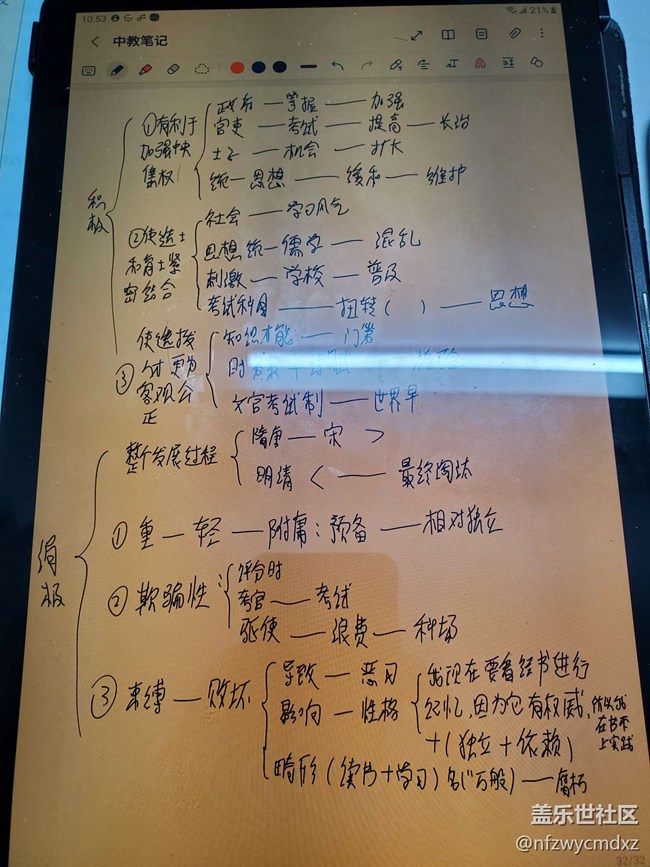 10:53
21%
中教笔记
积极
①有利于
加强中央
集权
政府—掌握—加强
官吏—考试—提高—长治
士子—机会—扩大
统一思想—缓和—维护
②使选士
和育士紧
密结合
社会—学习风气
思想统一儒学—混乱
刺激—学校—普及
考试科目—扭转( )—思想
③
使选拔
更为
客观公
正
知识才能—门第
时
文官考试制—世界早
消极
整个发展过程
隋唐—宋 >
明清 <—最终淘汰
①重—轻—附庸:预备—相对独立
②欺骗性:
评分时
考官—考试
驱使—浪费—科场
③束缚—败坏
导致—恶习
影响—性格
我现在要看经书进行
记忆,因为它有权威,
+(独立+依赖)
所以我
在书本
上实践
畸形(读书+学习)名("万般)—腐朽
盖乐世社区
@nfzwycmdxz
32/32